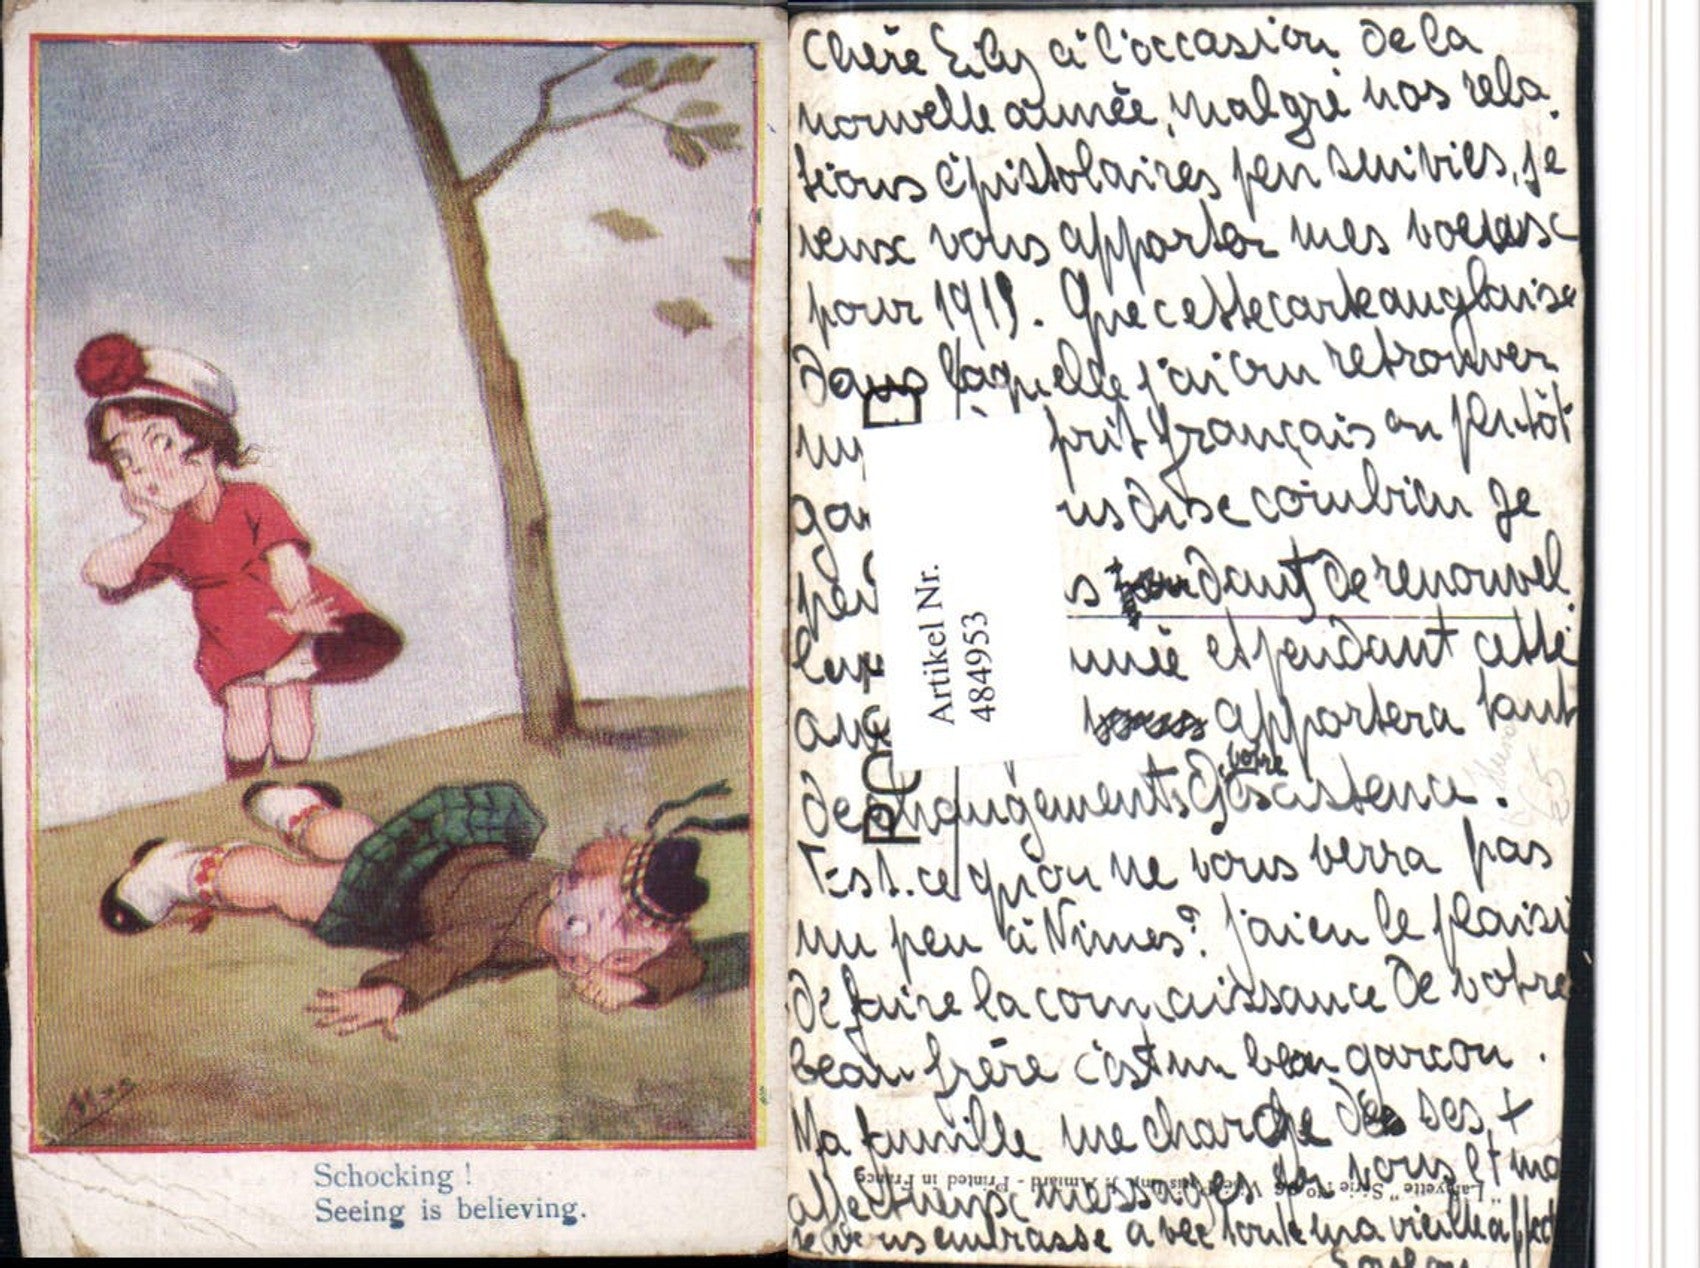 Schocking !
Seeing is believing.
Chère Lily à l'occasion de la
nouvelle année, malgré nos rela
tions épistolaires peu suivies, je
veux vous apporter mes voeux
pour 1919. Que cette carte anglaise
dans laquelle j'ai cru retrouver
prit français ou plutôt
gau us dise combien je
dant de renouvel
nnée et pendant cette
apportera tant
de changements votre existence.
Est-ce qu'on ne vous verra pas
un peu à Nimes? J'ai eu le plaisi
de faire la connaissance de votre
beau frère c'est un beau garçon.
Ma famille me charge de ses +
affectueux messages vous et mo
je vous embrasse avec toute ma vieille affect
Artikel Nr.
484953
"Lafayette" Série No - Printed in France